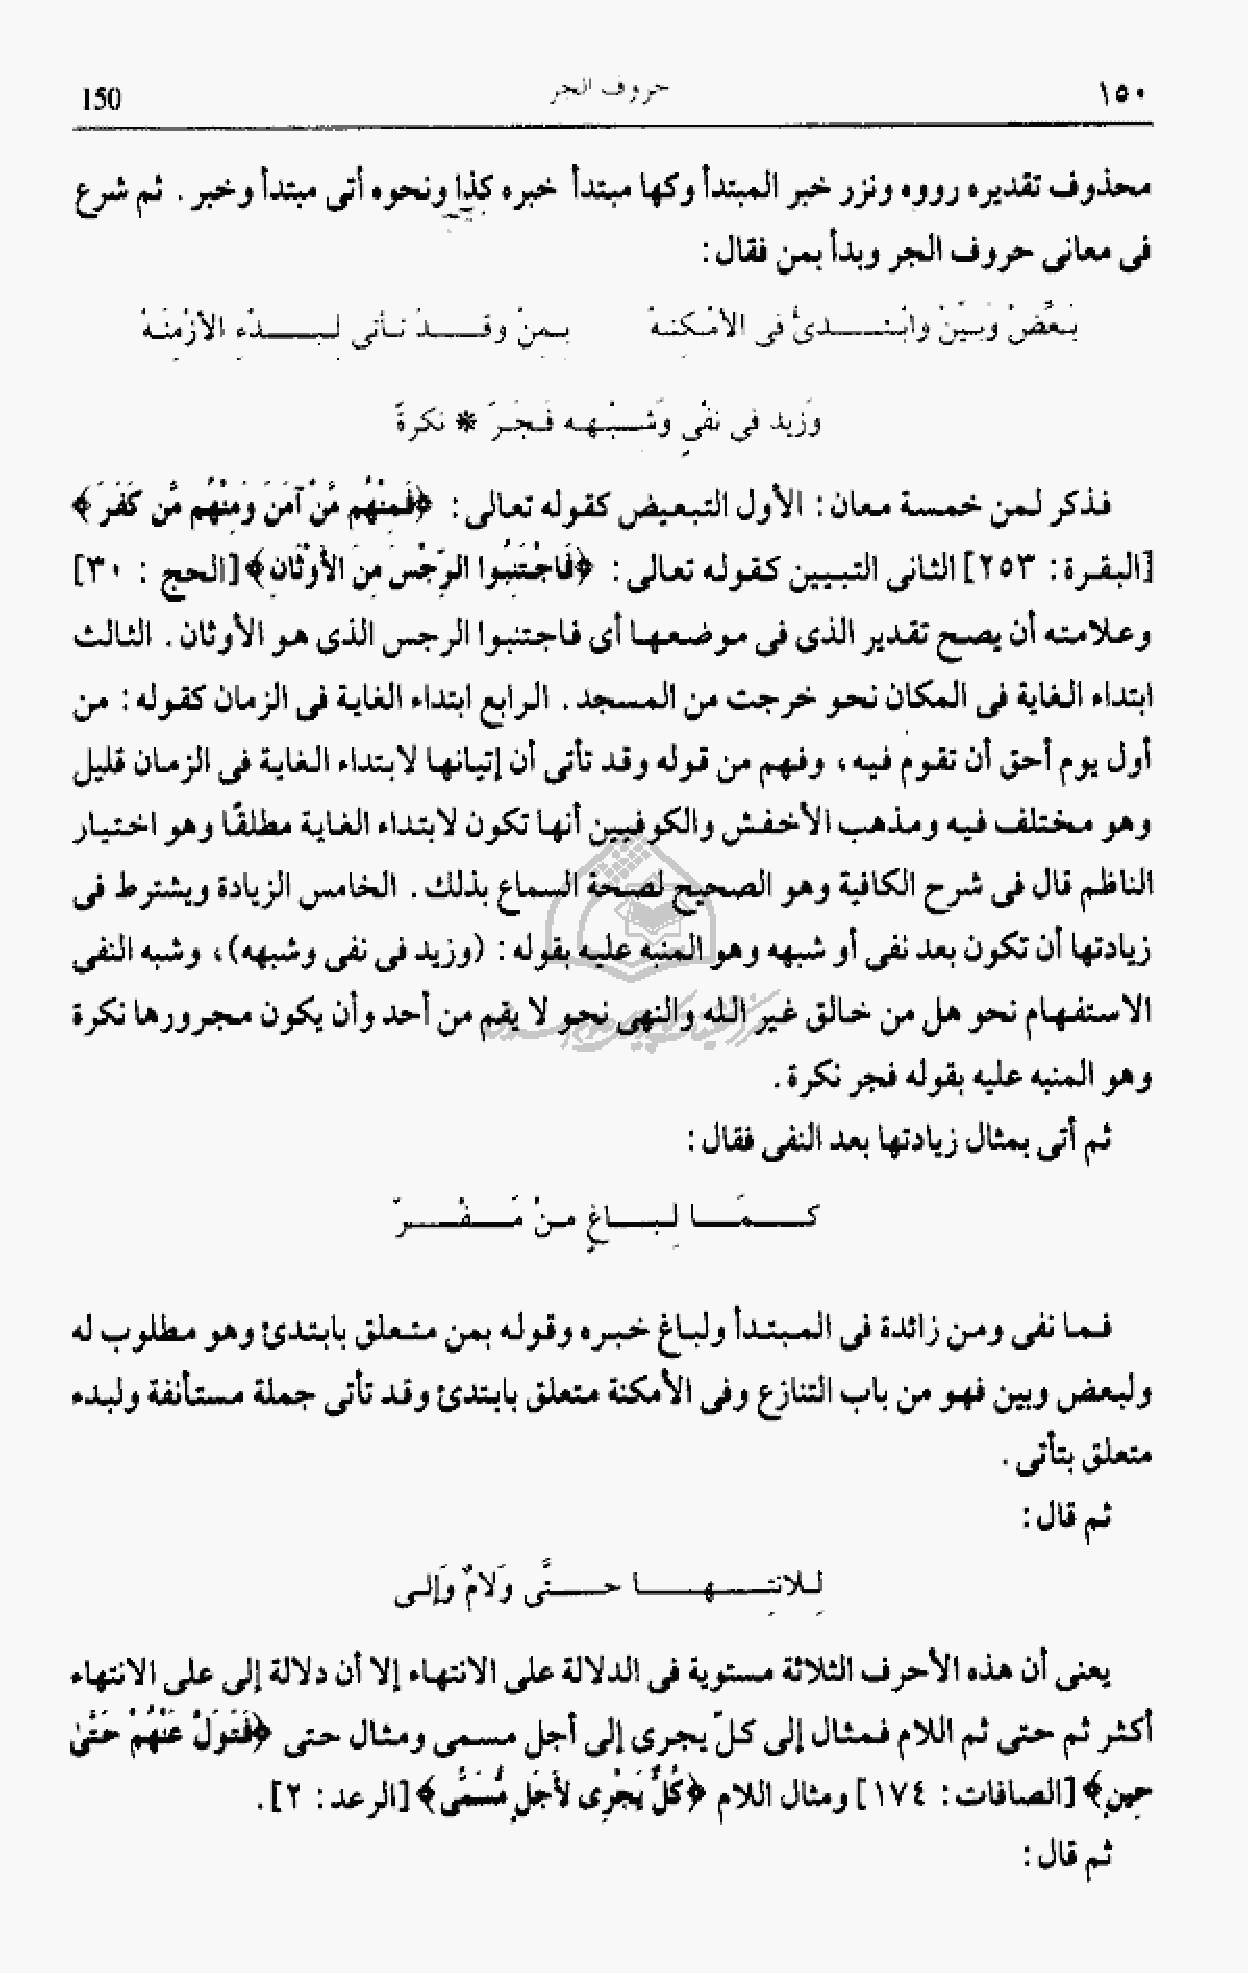 ١٥٠ حروف الجر 150
محذوف تقديره رووه ونزر خبر المبتدأ وكها مبتدأ خبره كذا ونحوه أتى مبتدأ وخبر . ثم شرع
فى معانى حروف الجر وبدأ بمن فقال :
بَعِّضْ وَبَيِّنْ وَابْتَدِئْ فى الأَمْكِنَهْ بِمِنْ وقد تأتى لِبَدْءِ الأَزْمِنَهْ
وَزِيدَ فى نَفْىٍ وَشِبْهِهِ فَجَرّ * نَكِرَةً
فذكر لمن خمسة معان : الأول التبعيض كقوله تعالى : ﴿فَمِنْهُم مَّنْ آمَنَ وَمِنْهُم مَّن كَفَرَ﴾
[البقرة : ٢٥٣] الثانى التبيين كقوله تعالى : ﴿فَاجْتَنِبُوا الرِّجْسَ مِنَ الأَوْثَانِ﴾ [الحج : ٣٠]
وعلامته أن يصح تقدير الذى فى موضعها أى فاجتنبوا الرجس الذى هو الأوثان . الثالث
ابتداء الغاية فى المكان نحو خرجت من المسجد . الرابع ابتداء الغاية فى الزمان كقوله : من
أول يوم أحق أن تقوم فيه ، وفهم من قوله وقد تأتى أن إتيانها لابتداء الغاية فى الزمان قليل
وهو مختلف فيه ومذهب الأخفش والكوفيين أنها تكون لابتداء الغاية مطلقًا وهو اختيار
الناظم قال فى شرح الكافية وهو الصحيح لصحة السماع بذلك . الخامس الزيادة ويشترط فى
زيادتها أن تكون بعد نفى أو شبهه وهو المنبه عليه بقوله : (وزيد فى نفى وشبهه) ، وشبه النفى
الاستفهام نحو هل من خالق غير الله والنهى نحو لا يقم من أحد وأن يكون مجرورها نكرة
وهو المنبه عليه بقوله فجر نكرة .
ثم أتى بمثال زيادتها بعد النفى فقال :
كَمَا لِبَاغٍ مِنْ مَفَرّ
فما نفى ومن زائدة فى المبتدأ ولباغ خبره وقوله بمن متعلق بابتدئ وهو مطلوب له
ولبعض وبين فهو من باب التنازع وفى الأمكنة متعلق بابتدئ وقد تأتى جملة مستأنفة ولبدء
متعلق بتأتى .
ثم قال :
لِلانتِهَا حتَّى وَلاَمٌ وَإِلَى
يعنى أن هذه الأحرف الثلاثة مستوية فى الدلالة على الانتهاء إلا أن دلالة إلى على الانتهاء
أكثر ثم حتى ثم اللام فمثال إلى كلّ يجرى إلى أجل مسمى ومثال حتى ﴿فَتَوَلَّ عَنْهُمْ حَتَّىٰ
حِينٍ﴾ [الصافات : ١٧٤] ومثال اللام ﴿كُلٌّ يَجْرِى لأَجَلٍ مُّسَمًّى﴾ [الرعد : ٢] .
ثم قال :